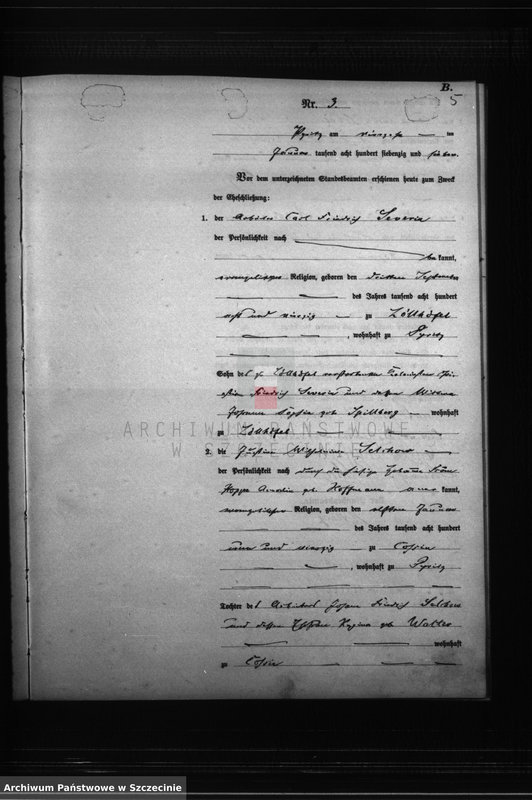 B.
5
Nr. 3.
Pyritz am vierzehn ten
Januar tausend acht hundert siebenzig und sieben.
Vor dem unterzeichneten Standesbeamten erschienen heute zum Zweck
der Eheschließung:
1. der Arbeiter Carl Friedrich Severin
der Persönlichkeit nach
be kannt,
evangelischer Religion, geboren den dritten September
des Jahres tausend acht hundert
und vierzig zu Köselitz
, wohnhaft zu Pyritz
Sohn des zu verstorbenen
Friedrich Severin und dessen Wittwe
Johanne Sophie geb. Spillberg wohnhaft
zu
ARCHIWUM PAŃSTWOWE
W SZCZECINIE
2. die Justine Wilhelmine Selchow
der Persönlichkeit nach durch die hiesige Hebamme Frau
geb. Hoffmann aner kannt,
evangelischer Religion, geboren den elften Januar
des Jahres tausend acht hundert
neun und vierzig zu Cossin
, wohnhaft zu Pyritz
Tochter des Arbeiters Johann Friedrich Selchow
und dessen Ehefrau Regina geb. Walter
wohnhaft
zu Cossin
Archiwum Państwowe w Szczecinie